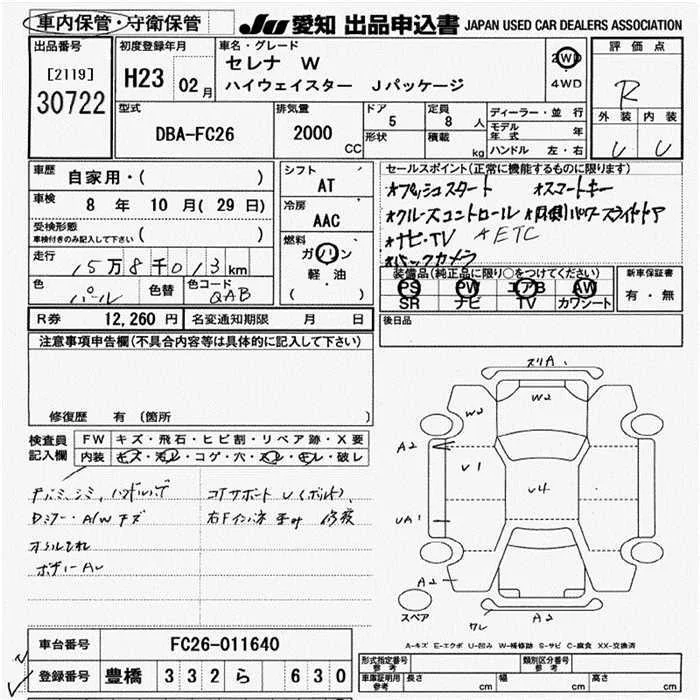 車内保管・守衛保管
JU 愛知 出品申込書 JAPAN USED CAR DEALERS ASSOCIATION
出品番号
[2119]
30722
初度登録年月
H23 02月
車名・グレード
セレナ W
ハイウェイスター Jパッケージ
2WD
4WD
評価点
R
外装 内装
U U
型式
DBA-FC26
排気量
2000 CC
ドア
5
形状
定員
8 人
積載 kg
ディーラー・並行
モデル年式 年
ハンドル 左・右
車歴 自家用・( )
車検 8 年 10 月( 29 日)
受検形態
車検付きのみ記入して下さい ( )
走行 15万8千013km
色 パール 色替 色コード QAB
シフト
AT
冷房
AAC
燃料
ガソリン
軽油
( )
セールスポイント(正常に機能するものに限ります)
*プッシュスタート *スマートキー
*クルーズコントロール *両側パワースライドドア
*ナビ・TV *ETC
*バックカメラ
装備品(純正品に限り○をつけてください)
PS PW エアB AW
SR ナビ TV カワシート
新車保証書
有・無
R券 12,260 円 名変通知期限 月 日
後日品
注意事項申告欄(不具合内容等は具体的に記入して下さい)
修復歴 有(箇所 )
検査員記入欄
FW キズ・飛石・ヒビ割・リペア跡・X要
内装 キズ・汚レ・コゲ・穴・スレ・キレ・破レ
コアサポート U(ボルト)、
Dミラー・A/W キズ
右Fインパネ 修復
ボデーAU
スリA
W2
W2
A2
U1
U4
UA1
A2
A2
ワレ
スペア
A-キズ E-エクボ U-凹み W-補修跡 S-サビ C-腐食 XX-交換済
車台番号 FC26-011640
登録番号 豊橋 332 ら 630
型式指定番号 参考
類別区分番号 参考
車庫証明用 参考 長さ cm 幅 cm 高さ cm